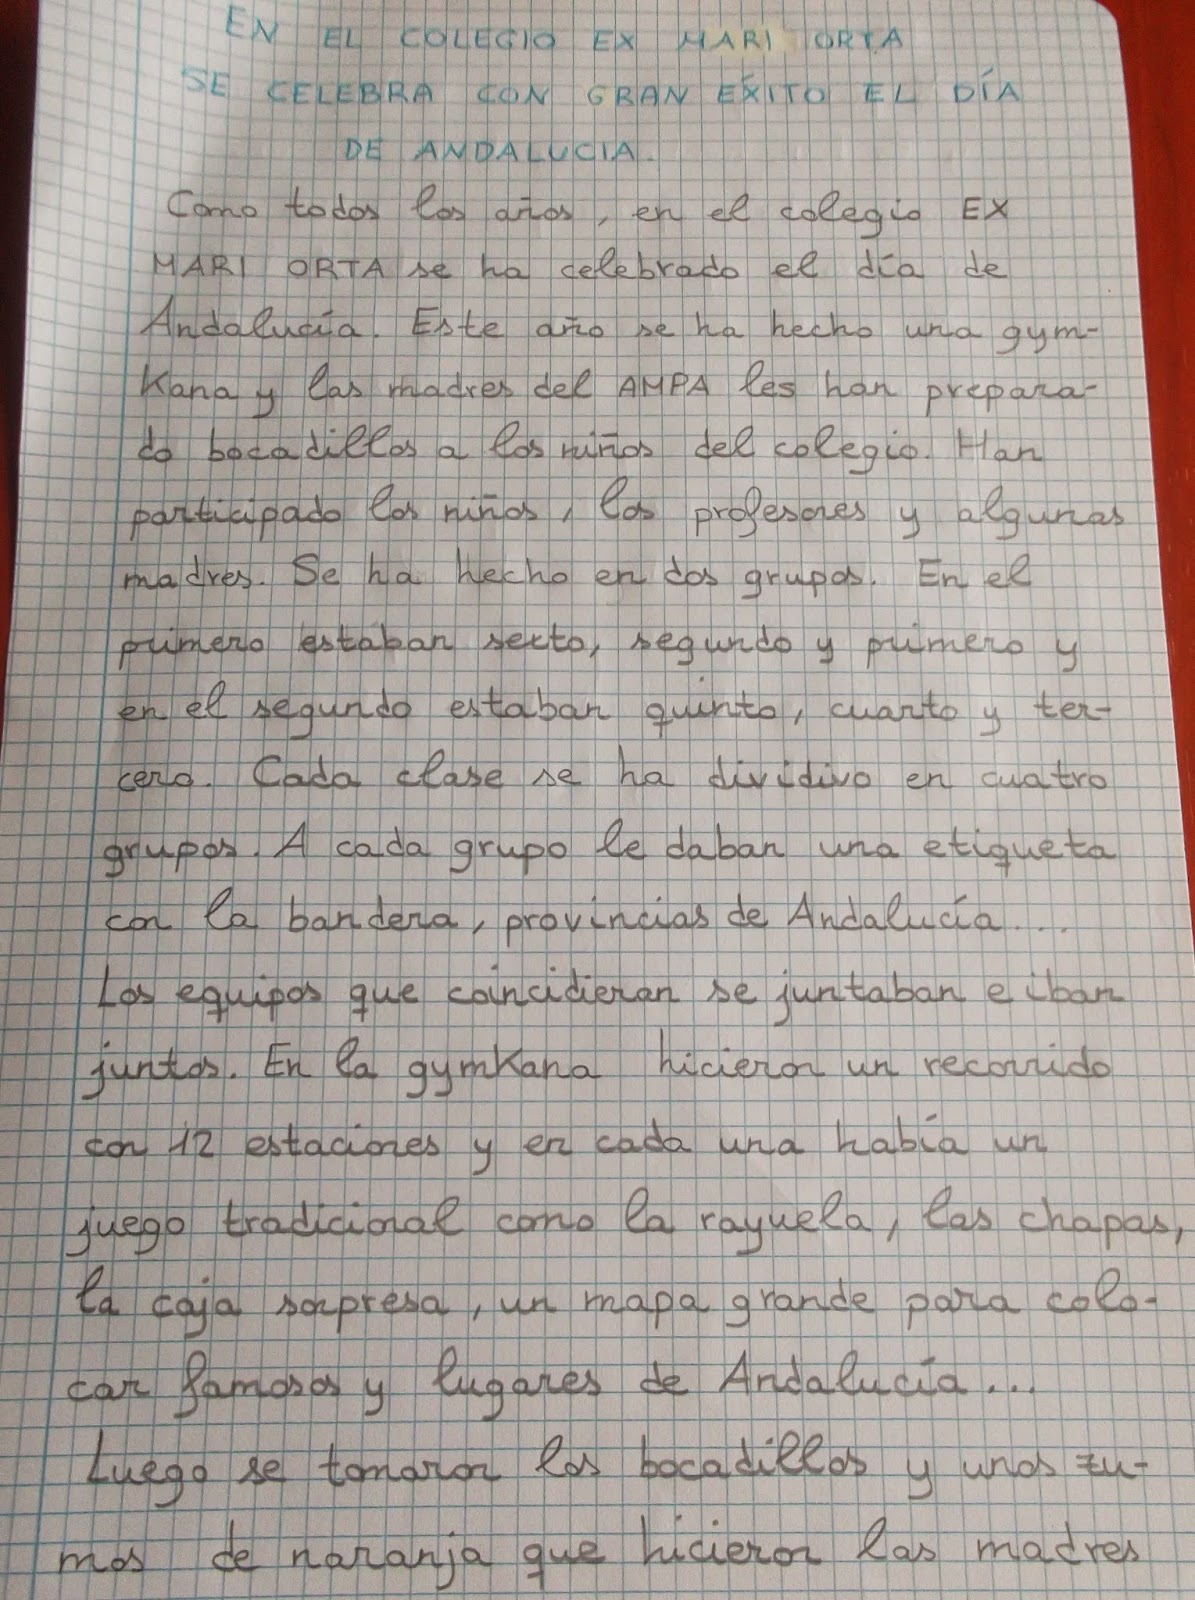 EN EL COLEGIO EX MARI ORTA
SE CELEBRA CON GRAN EXITO EL DÍA
DE ANDALUCIA.
Como todos los años, en el colegio EX
MARI ORTA se ha celebrado el día de
Andalucía. Este año se ha hecho una gym-
Kana y las madres del AMPA les han prepara-
do bocadillos a los niños del colegio. Han
participado los niños, los profesores y algunas
madres. Se ha hecho en dos grupos. En el
primero estaban sexto, segundo y primero y
en el segundo estaban quinto, cuarto y ter-
cero. Cada clase se ha dividivo en cuatro
grupos. A cada grupo le daban una etiqueta
con la bandera, provincias de Andalucía....
Los equipos que coincidieran se juntaban e iban
juntos. En la gymKana hicieron un recorrido
con 12 estaciones y en cada una había un
juego tradicional como la rayuela, las chapas,
la caja sorpresa, un mapa grande para colo-
car famosos y lugares de Andalucía...
Luego se tomaron los bocadillos y unos zu-
mos de naranja que hicieron las madres